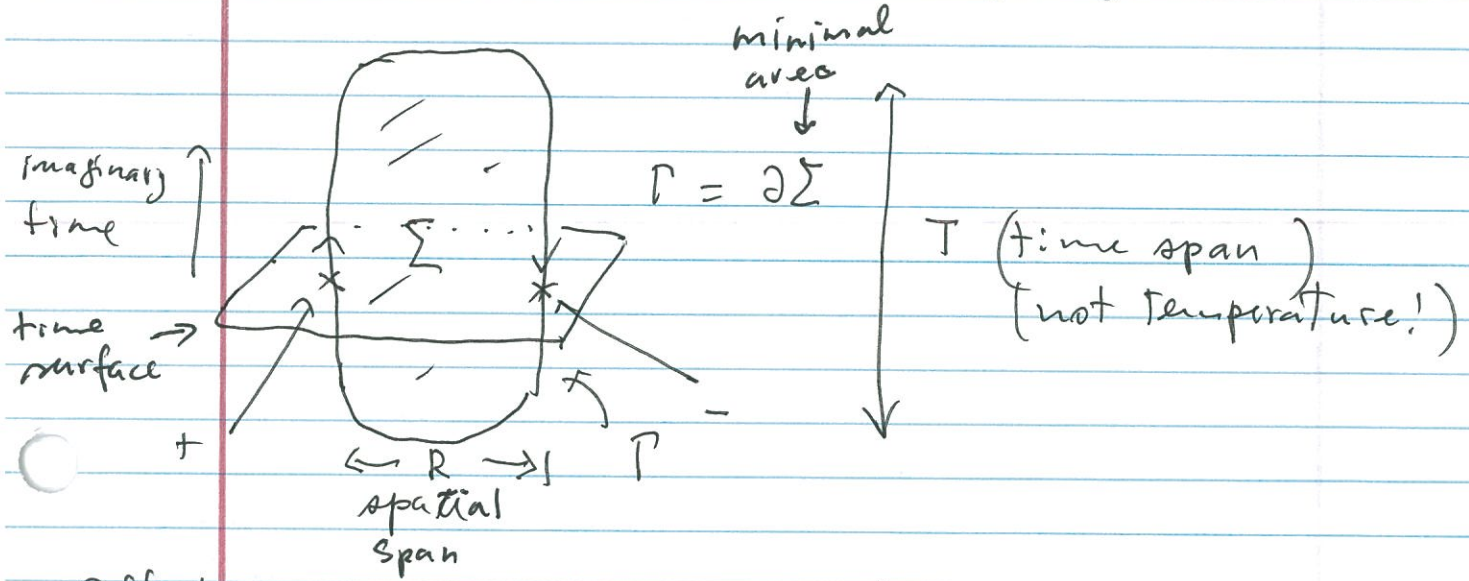 minimal
area
imaginary
time
Γ = ∂Σ
Σ
T (time span)
(not temperature!)
time
surface
+
-
R
Γ
spatial
span